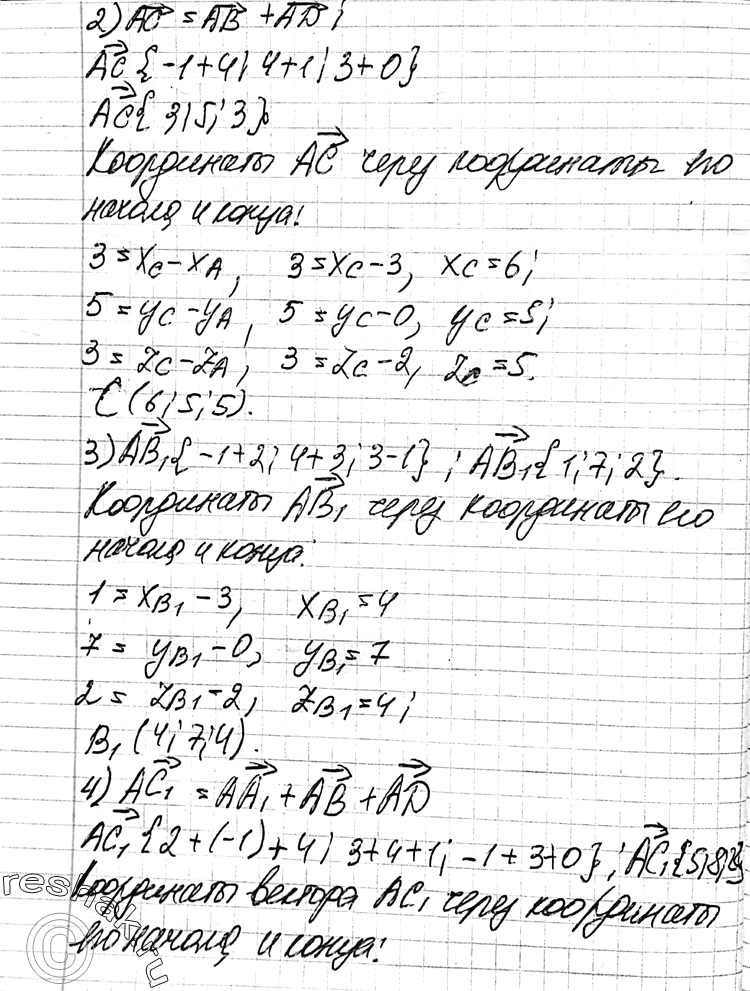 2) AC = AB + AD;
AC{-1+4; 4+1; 3+0}
AC{3; 5; 3}.
Координаты AC через координаты его
начала и конца:
3 = xC - xA, 3 = xC - 3, xC = 6;
5 = yC - yA, 5 = yC - 0, yC = 5;
3 = zC - zA, 3 = zC - 2, zC = 5.
C (6; 5; 5).
3) AB₁{-1+2; 4+3; 3-1}; AB₁{1; 7; 2}.
Координаты AB₁ через координаты его
начала и конца:
1 = xB₁ - 3, xB₁ = 4
7 = yB₁ - 0, yB₁ = 7
2 = zB₁ - 2, zB₁ = 4;
B₁ (4; 7; 4).
4) AC₁ = AA₁ + AB + AD
AC₁{2+(-1)+4; 3+4+1; -1+3+0}; AC₁{5; 8; 2}
Координаты вектора AC₁ через координаты
его начала и конца:
reshak.ru
©